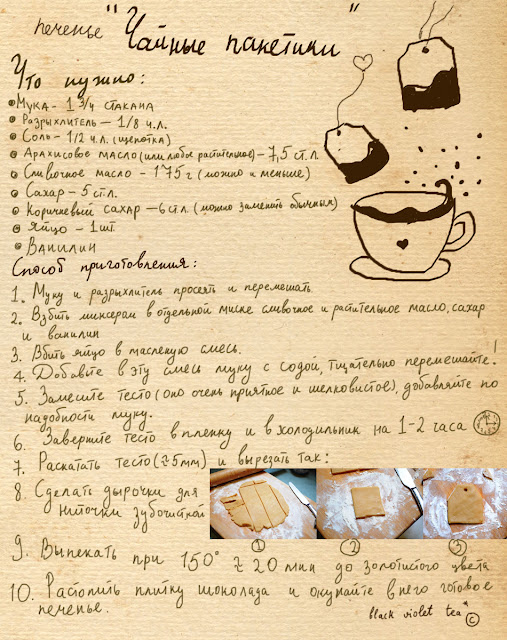 печенье "Чайные пакетики"
Что нужно:
Мука - 1 3/4 стакана
Разрыхлитель - 1/8 ч.л.
Соль - 1/2 ч.л. (щепотка)
Арахисовое масло (или любое растительное) - 7,5 ст.л.
Сливочное масло - 175 г (можно и меньше)
Сахар - 5 ст.л.
Коричневый сахар - 6 ст.л. (можно заменить обычным)
Яйцо - 1 шт.
Ванилин
Способ приготовления:
1. Муку и разрыхлитель просеять и перемешать.
2. Взбить миксером в отдельной миске сливочное и растительное масло, сахар
и ванилин
3. Вбить яйцо в масленую смесь.
4. Добавьте в эту смесь муку с содой, тщательно перемешайте!
5. Замесите тесто (оно очень приятное и шелковистое), добавляйте по
надобности муку.
6. Заверните тесто в пленку и в холодильник на 1-2 часа
7. Раскатать тесто (≈5мм) и вырезать так:
8. Сделать дырочки для
ниточки зубочисткой
1 2 3
9. Выпекать при 150° ≈ 20 мин до золотистого цвета
10. Растопить плитку шоколада и окунайте в него готовое
печенье.
black violet tea ©